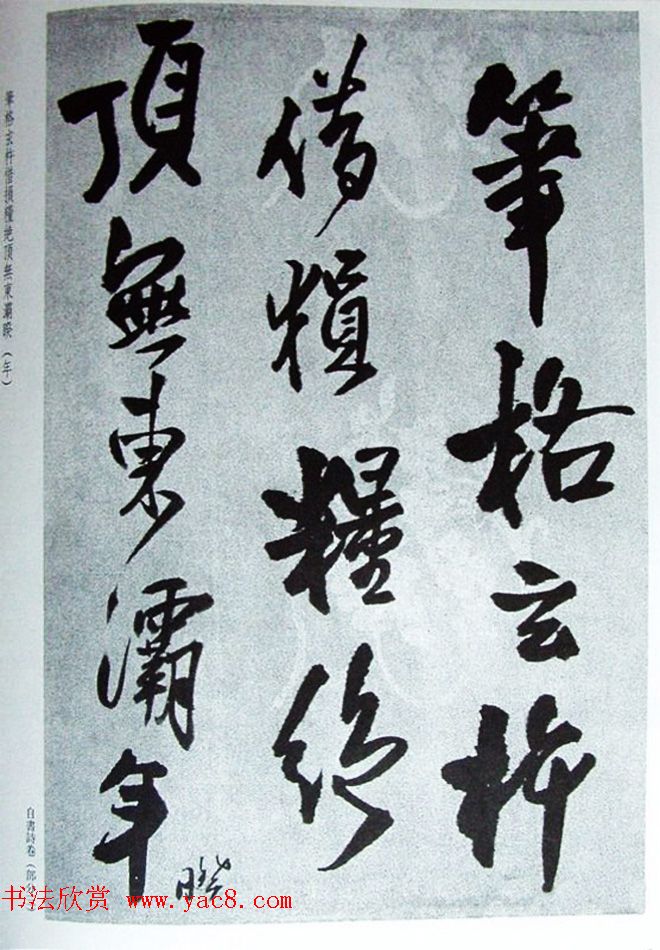 筆格玄杵
借損糧絶
頂無東灞年
暌
筆格玄杵借損糧绝頂無東灞暌（年）
自書詩卷（部分）
书法欣赏 www.yac8.com